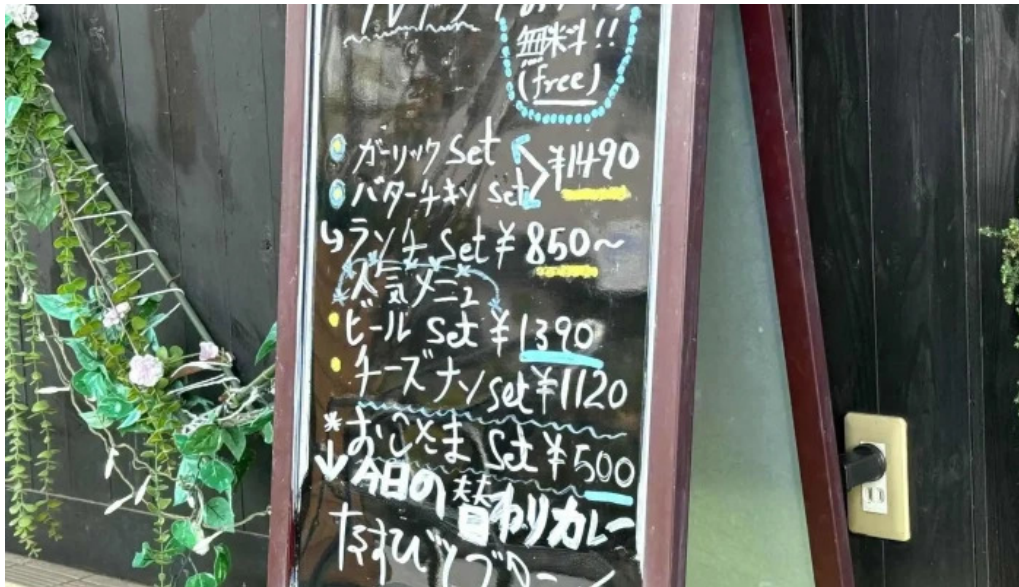 無料!!
(free)
ガーリック set ¥1490
バターチキン set
ランチ set ¥ 850～
人気メニュ
ビール set ¥1390
チーズナン set ¥1120
*おこさま set ¥500
↓今日の替わりカレー
なすび